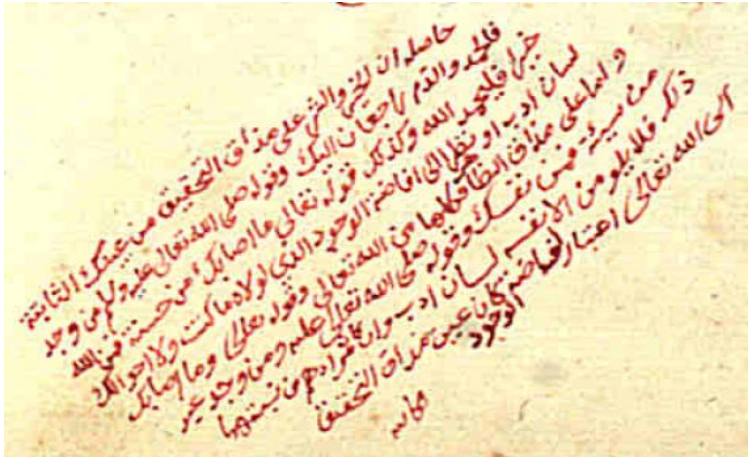 حاصله ان الخير والشر على مذاق التحقيق من عينك الثابتة
فالحمد والذم راجعان اليك وقوله صلى الله تعالى عليه وسلم من وجد
خيرا فليحمد الله وكذلك قوله تعالى ما اصابك من حسنة فمن الله
لسان ادب او نظر الى افاضة الوجود الذي لولاه ما كنت ولا احوالك
واما على مذاق الظاهر فكلاهما من الله تعالى وقوله تعالى وما اصابك
من سيئة فمن نفسك وقوله صلى الله تعالى عليه ومن وجد غير
ذلك فلا يلومن الا نفسه لسان ادب وان كان مرادهم من نسبتهما
الى الله تعالى اعتبار افاضة الوجود كان عين مذاق التحقيق